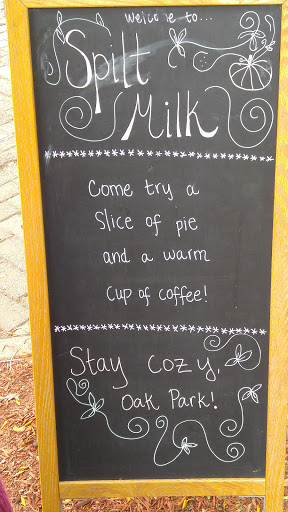 welcome to...
Spilt
Milk
Come try a
Slice of pie
and a warm
cup of coffee!
Stay cozy,
Oak Park!